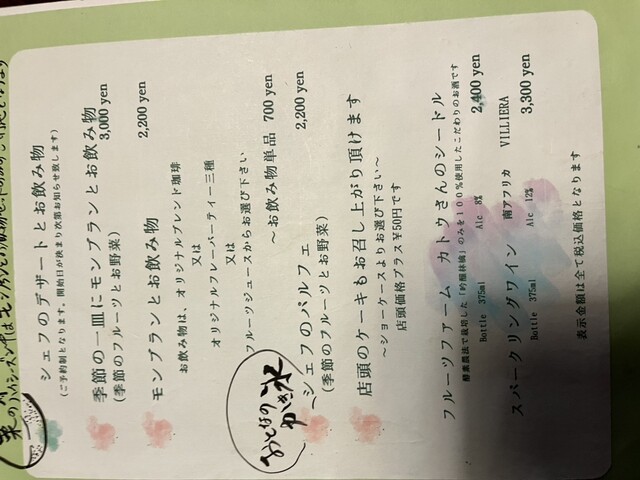 シェフのデザートとお飲み物
(ご予約制となります。開始日が決まり次第お知らせ致します)
季節の一皿にモンブランとお飲み物
(季節のフルーツとお野菜) 3,000 yen
モンブランとお飲み物 2,200 yen
お飲み物は、オリジナルブレンド珈琲
又は
オリジナルフレーバーティー三種
又は
フルーツジュースからお選び下さい
~お飲み物単品 700 yen
おとなの
かき氷
シェフのパルフェ 2,200 yen
(季節のフルーツとお野菜)
店頭のケーキもお召し上がり頂けます
~ショーケースよりお選び下さい~
店頭価格プラス¥50円です
フルーツファーム カトウさんのシードル
酵素農法で栽培した「吟醸林檎」のみを100%使用したこだわりのお酒です
Bottle 375ml Alc 8% 2,400 yen
スパークリングワイン 南アフリカ VILLIERA
Bottle 375ml Alc 12% 3,300 yen
表示金額は全て税込価格となります